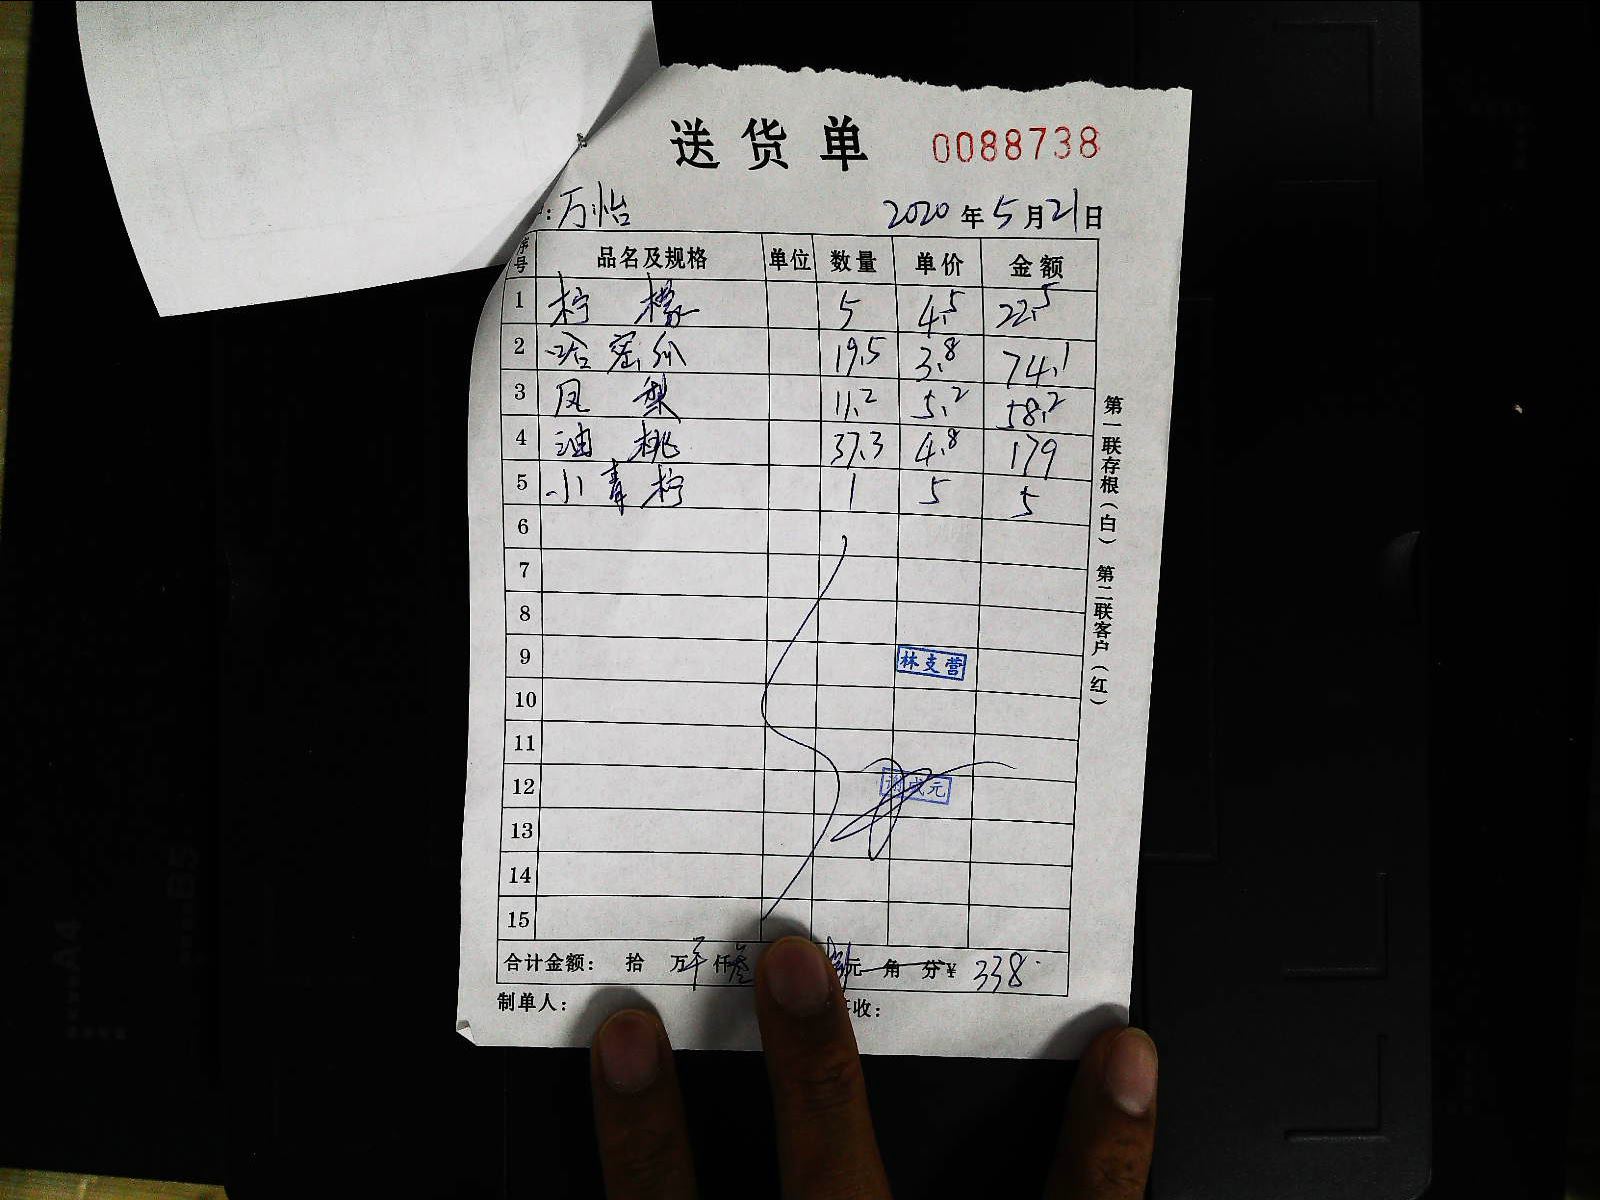 送货单 0088738
: 万怡 2020年5月21日
序号 品名及规格 单位 数量 单价 金额
1 柠檬 5 4.5 22.5
2 哈密瓜 19.5 3.8 74.1
3 凤梨 11.2 5.2 58.2
4 油桃 37.3 4.8 179
5 小青柠 1 5 5
6
7
8
9 林支营
10
11
12 成元
13
14
15
合计金额: 拾 万 仟叁 元 角 分¥ 338
制单人: 收:
第一联存根(白) 第二联客户(红)